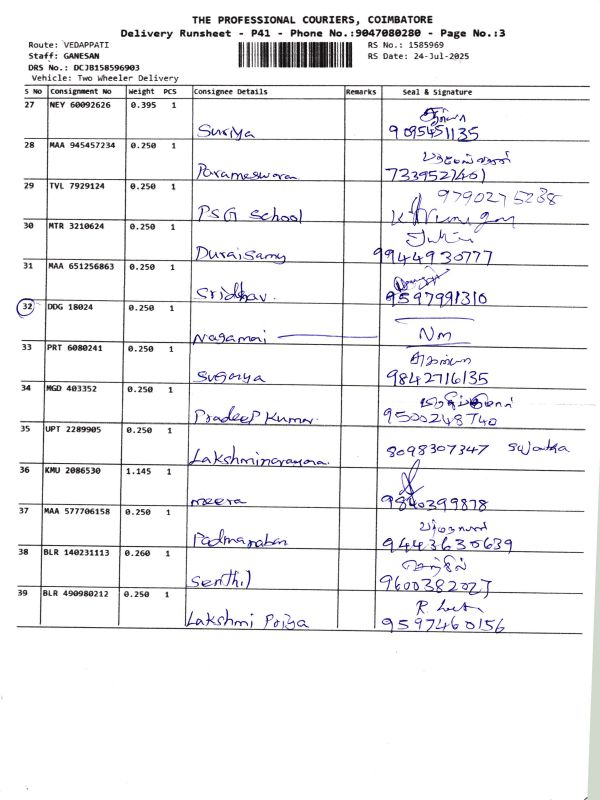 THE PROFESSIONAL COURIERS, COIMBATORE
Delivery Runsheet - P41 - Phone No.:9047080280 - Page No.:3
Route: VEDAPPATI RS No.: 1585969
Staff: GANESAN RS Date: 24-Jul-2025
DRS No.: DCJB158596903
Vehicle: Two Wheeler Delivery
S No Consignment No Weight PCS Consignee Details Remarks Seal & Signature
27 NEY 60092626 0.395 1
Suriya 9095451135
28 MAA 945457234 0.250 1
Parameswaran 7339527401
29 TVL 7929124 0.250 1 9790275238
PSG School
30 MTR 3210624 0.250 1
Duraisamy 9944930777
31 MAA 651256863 0.250 1
Sridhar. 9597991310
32 DDG 18024 0.250 1
Nagamai Nm
33 PRT 6080241 0.250 1
9842716135
34 MGD 403352 0.250 1
Pradeep Kumar. 9500248740
35 UPT 2289905 0.250 1
Lakshminarayana. 8098307347 Sujatha
36 KMU 2086530 1.145 1
meera 9840399878
37 MAA 577706158 0.250 1
Padmanaban 9443630639
38 BLR 140231113 0.260 1
Senthil 9600382027
39 BLR 490980212 0.250 1
Lakshmi Priya 9597460156